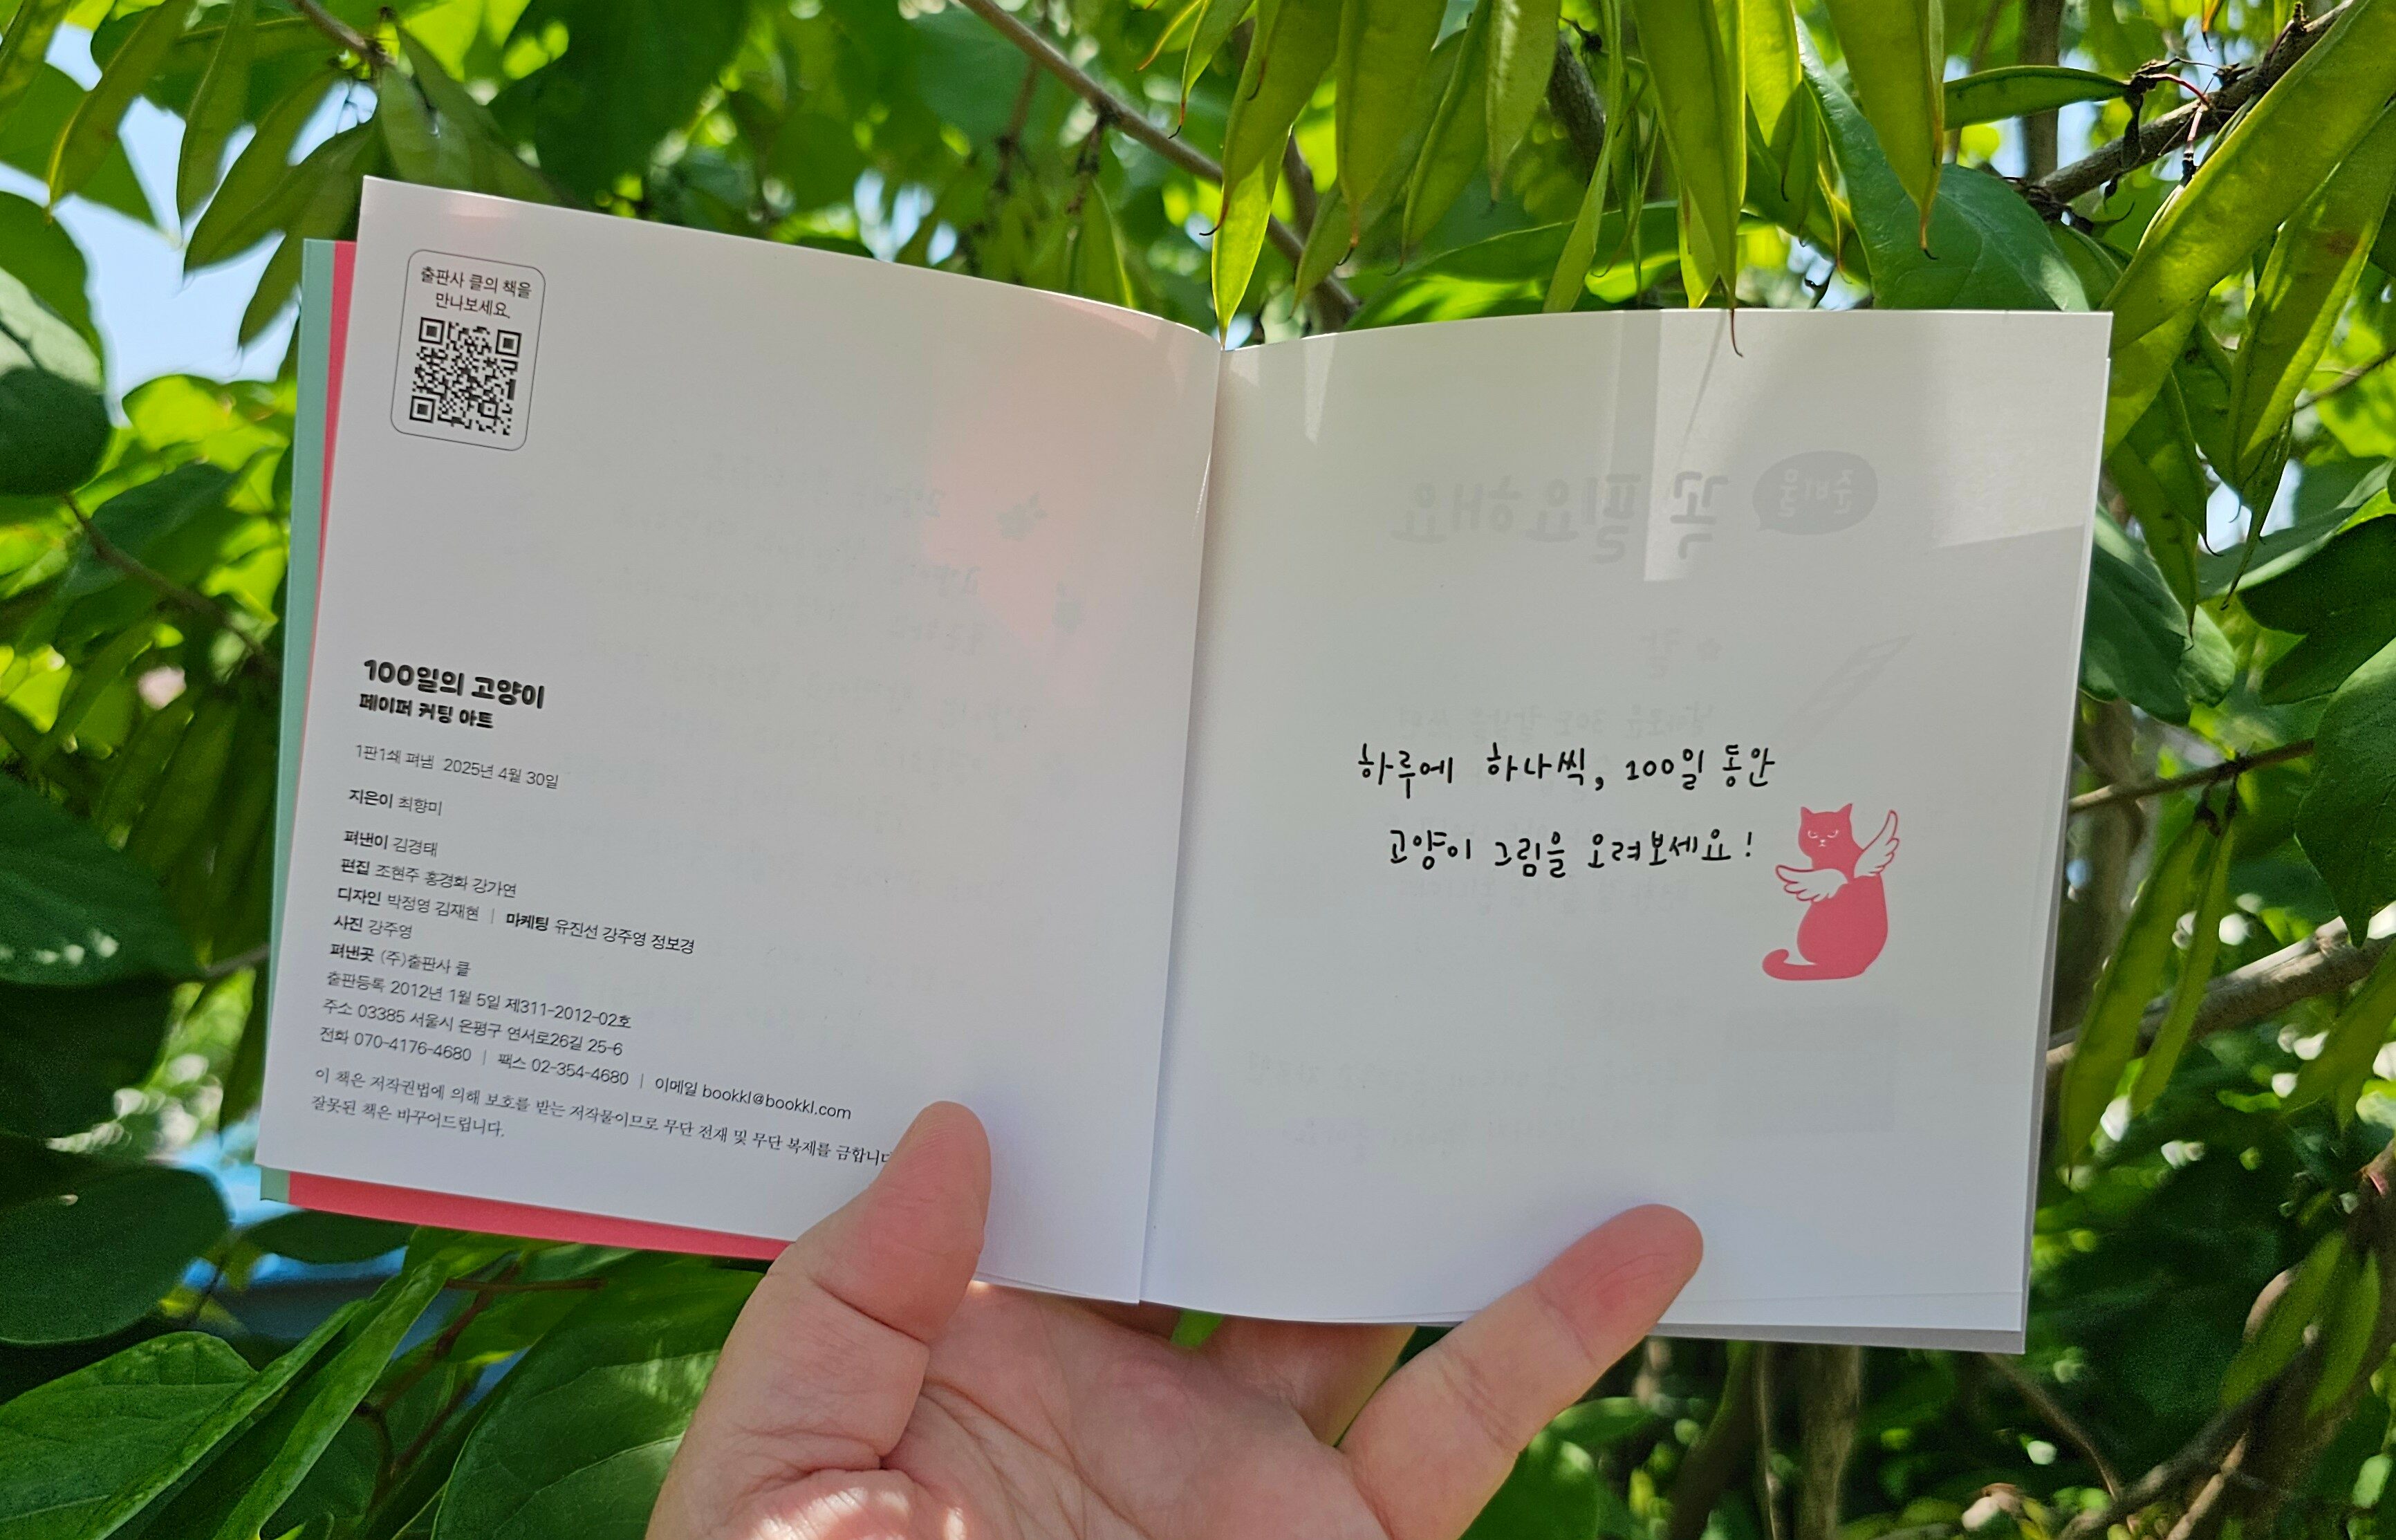 출판사 클의 책을
만나보세요.
100일의 고양이
페이퍼 커팅 아트
1판1쇄 펴냄 2025년 4월 30일
지은이 최향미
펴낸이 김경태
편집 조현주 홍경화 강가연
디자인 박정영 김재현 | 마케팅 유진선 강주영 정보경
사진 강주영
펴낸곳 (주)출판사 클
출판등록 2012년 1월 5일 제311-2012-02호
주소 03385 서울시 은평구 연서로26길 25-6
전화 070-4176-4680 | 팩스 02-354-4680 | 이메일 bookkl@bookkl.com
이 책은 저작권법에 의해 보호를 받는 저작물이므로 무단 전재 및 무단 복제를 금합니다
잘못된 책은 바꾸어드립니다.
준비물 꼭 필요해요
하루에 하나씩, 100일 동안
고양이 그림을 오려보세요!